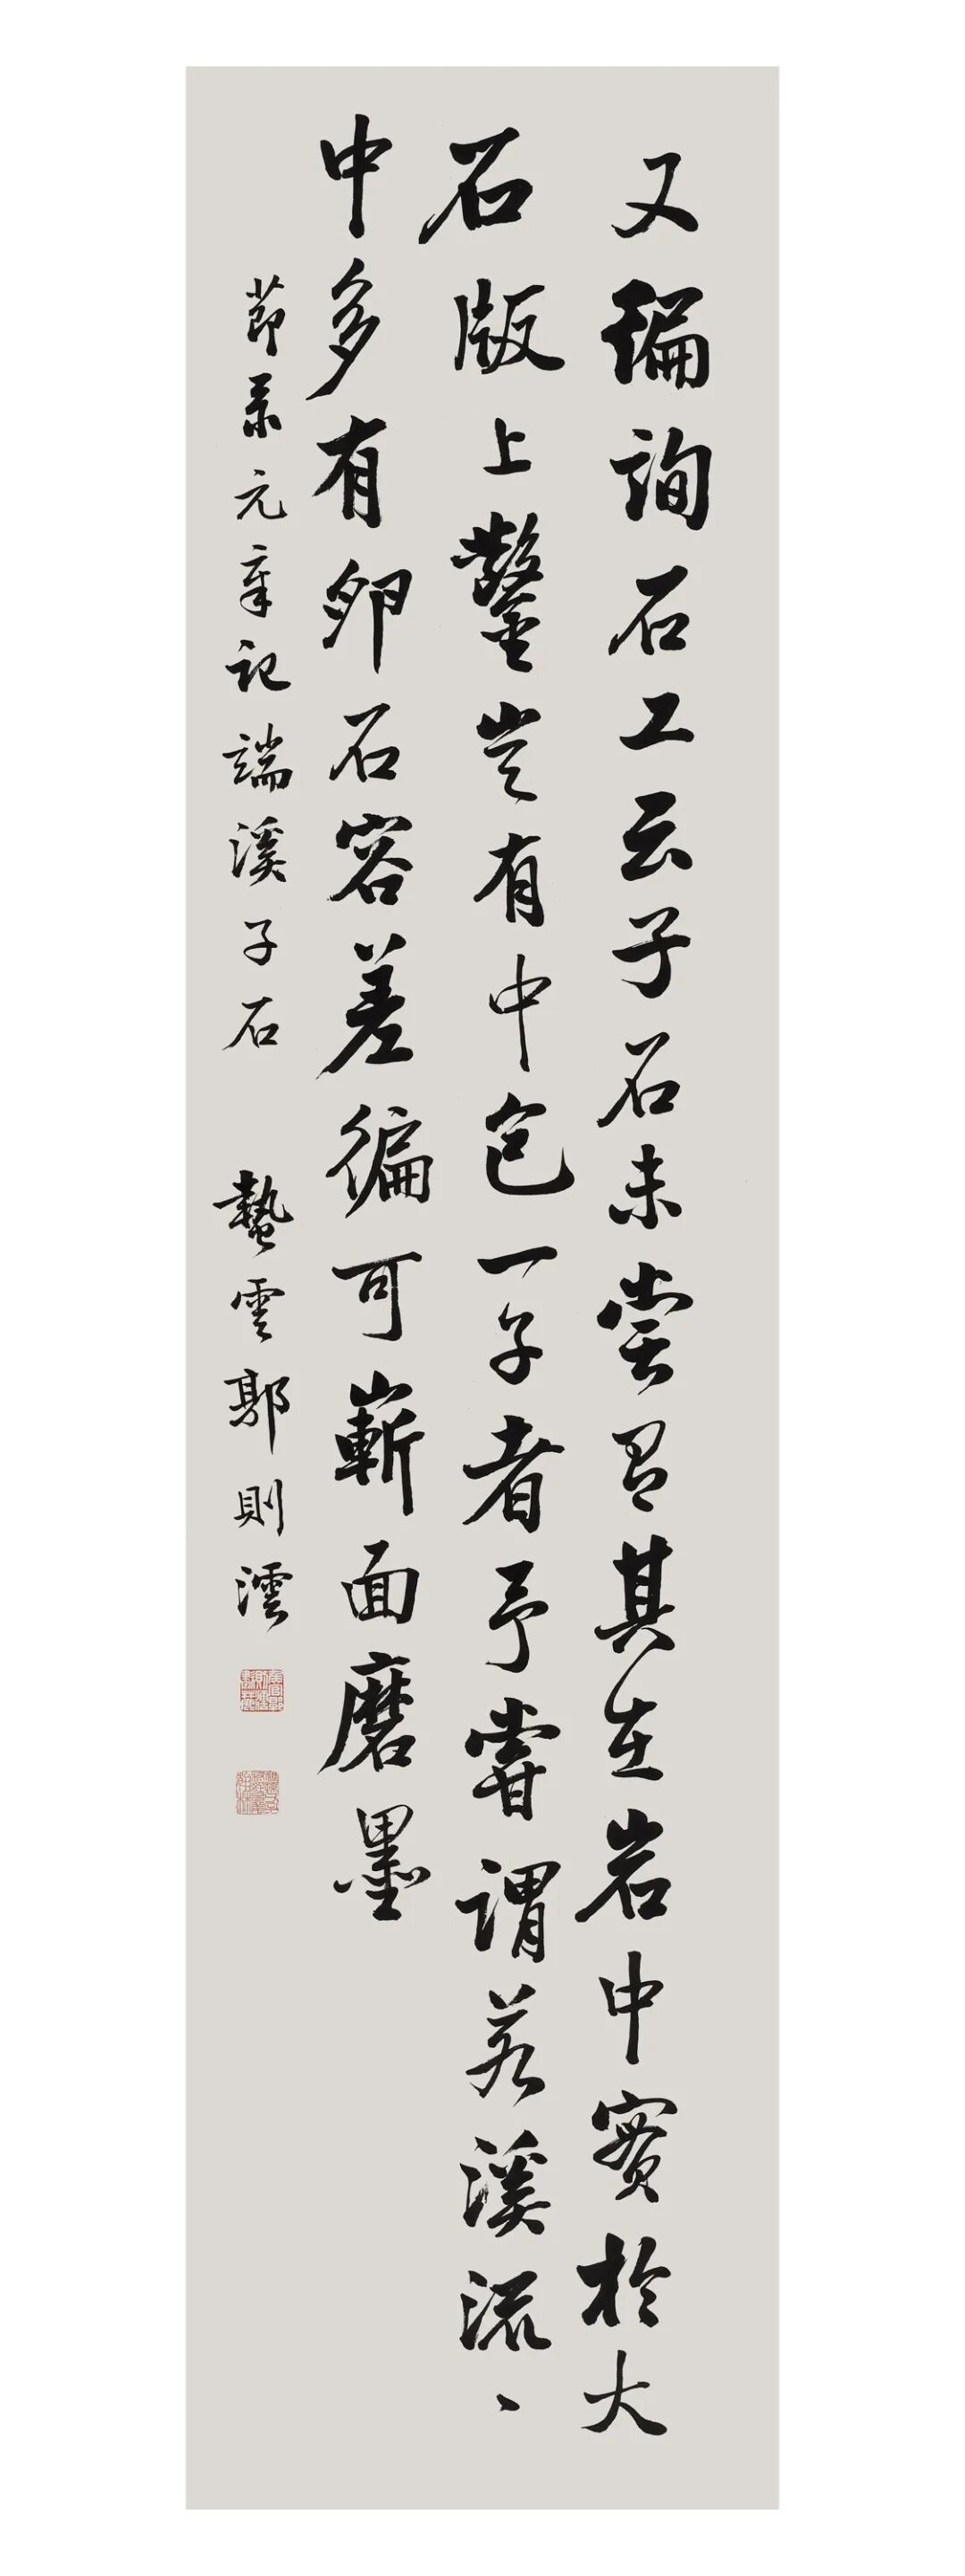 又徧詢石工云子石未嘗有其在岩中實於大
石版上鑿豈有中包一子者予嘗謂若溪流、
中多有卵石容差徧可嶄面磨墨
節录元章記端溪子石 蟄雲郭則澐